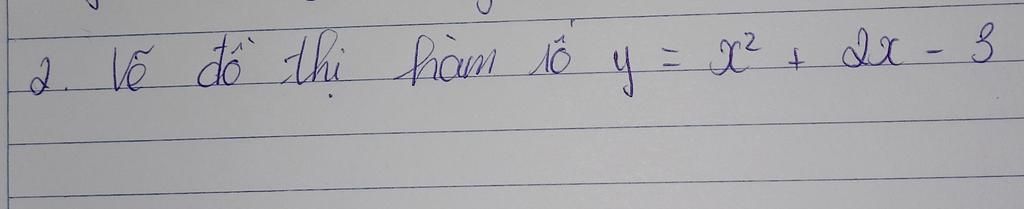 2. Vẽ đồ thị hàm số y = x² + 2x - 3